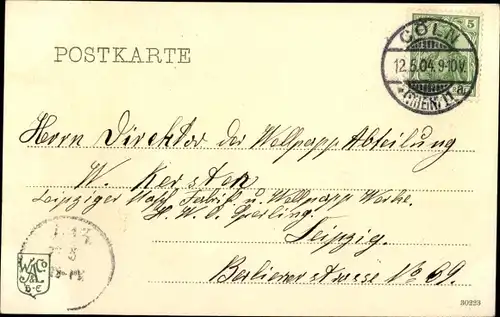 POSTKARTE
CÖLN
12.5.04.9-10V.
5
Herrn Direktor der Wellpapp Abteilung
W. Kersten
Leipziger Fabrik u. Wellpapp Werke
H. W. C. Sperling.
Leipzig.
Berlinerstrasse No 69.
5
30223